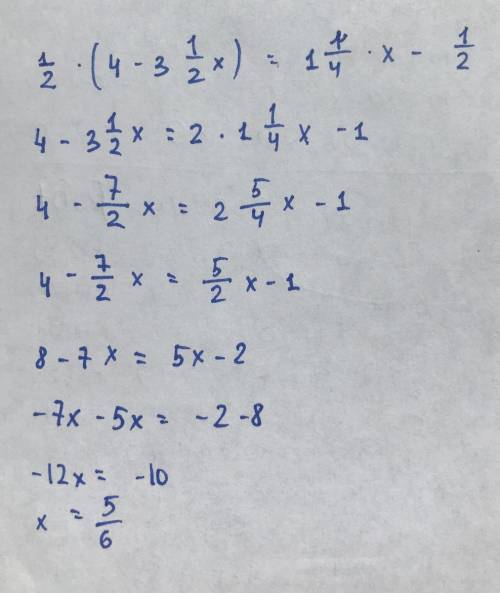 1/2 · (4 - 3 1/2 x) = 1 1/4 · x - 1/2
4 - 3 1/2 x = 2 · 1 1/4 x - 1
4 - 7/2 x = 2 5/4 x - 1
4 - 7/2 x = 5/2 x - 1
8 - 7x = 5x - 2
-7x - 5x = -2 - 8
-12x = -10
x = 5/6